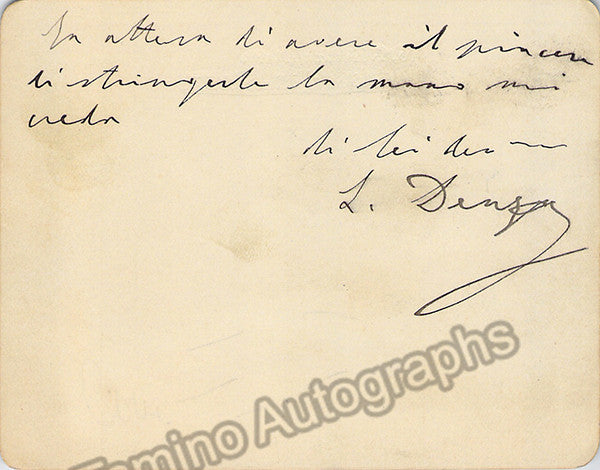 In attesa di avere il piacere
di stringerle la mano mi
creda
di Lei dev
L. Denza
Tamino Autographs